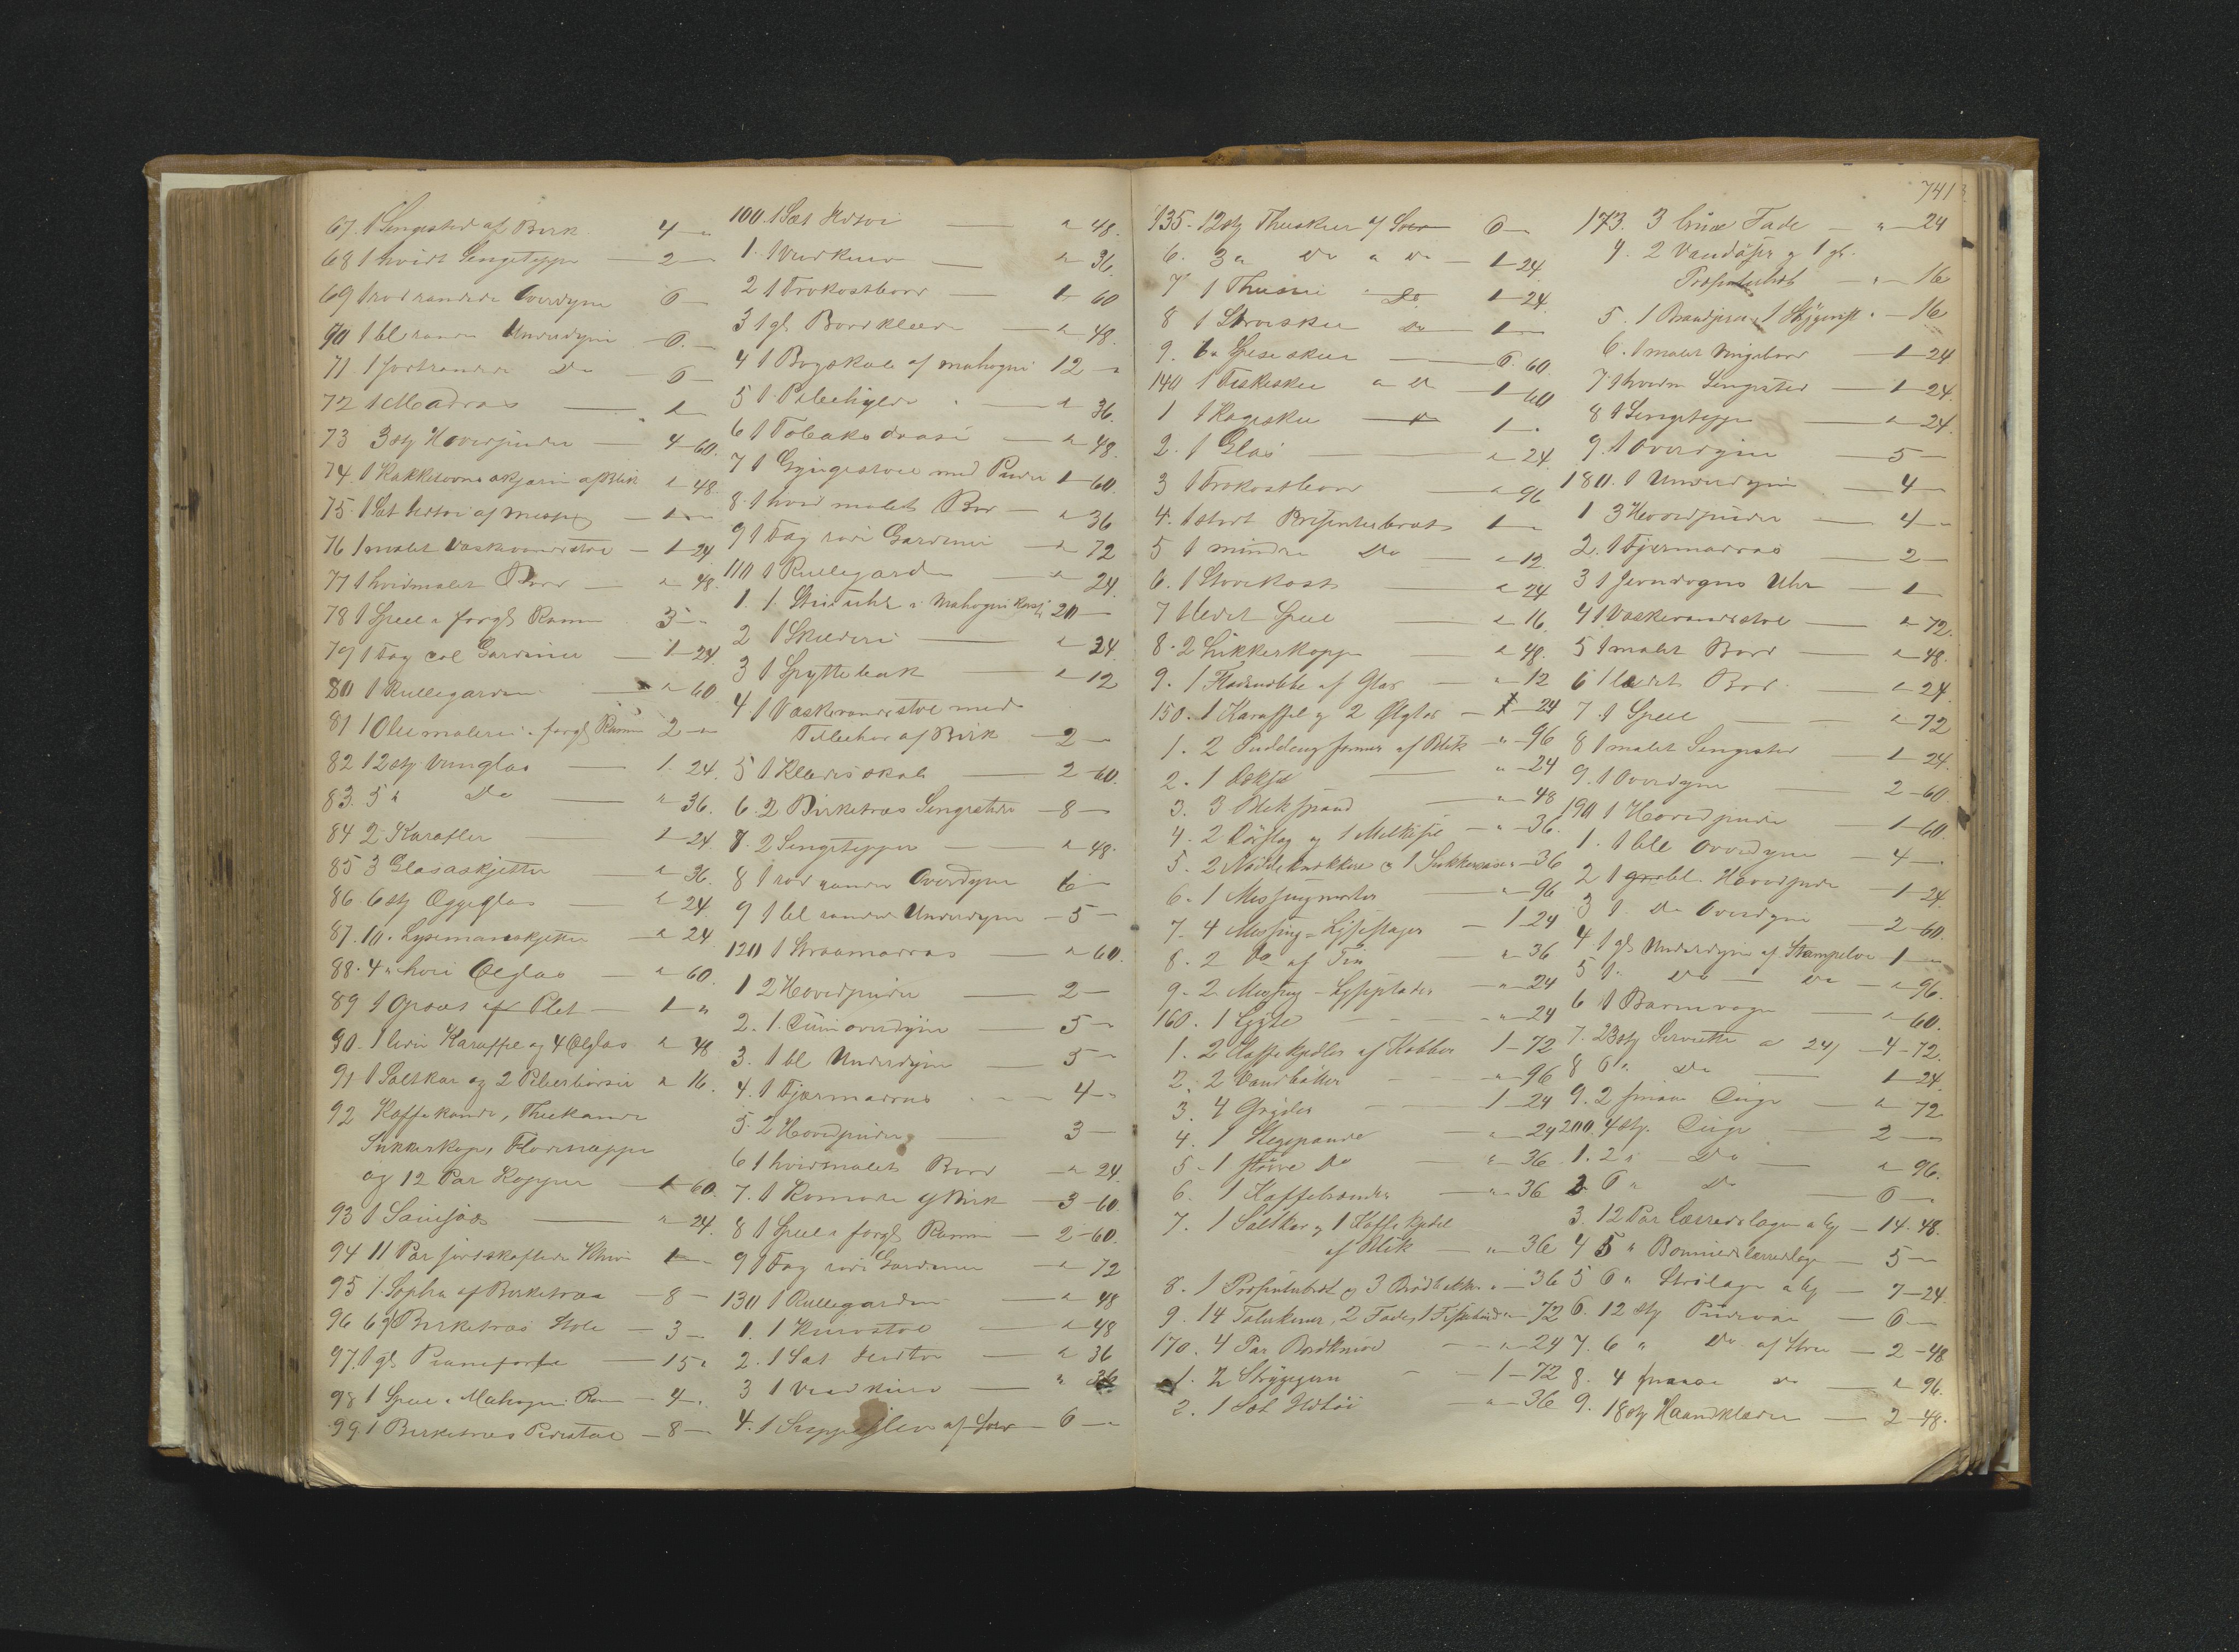 67. 1 Sengested af Birk 4 — "
68 1 hvidt Sengeteppe — 2 — "
69 1 rød randede Overdyne 6 —
70 1 bl. randet Underdyne — 6. —
71. 1 sortrandede Do — 6 —
72 1 Madras — 1 —
73 3 stk Hovedpuder — 4 - 60.
74. 1 Kakkelovnsskjærm af Blik " - 48
75. 1 Sæt Ildtøi af Messing — 1 — "
76 1 malet Vaskevandsstol — 1 - 24
77 1 hvidmalet Bord — " - 48.
78 1 Speil i forgt Ramme 3 - "
79 1 Fag col Gardiner — 1 - 24.
80 1 Rullegardin — " - 60
81 1 Oliemaleri i forgt Ramme 2 — "
82 12 stk Vinglas — 1. 24.
83. 5 " Do — " 36.
84 2 Karafler — 1 - 24
85 3 Glasaskjetter — " 36.
86. 6 stk Æggeglas — " 24
87. 10. Lysemanskjetter — " 24
88. 4 " hvide Ølglas — " 60.
89 1 Opsats af Plet — 1 - "
90. 1 liden Karaffel og 4 Ølglas " 48
91 1 Saltkar og 2 Peberbøsser " 16.
92 Kaffekande, Theekande
Sukkerkop, Flødemugge
og 12 Par Kopper — 1 - 60.
93 1 — " 24.
94 11 Par sortskaftede Knive 1 — "
95 1. Sopha af Birketræ — 8 —
96 6 stk Birketræs Stole — 3 —
97. 1 gl Pianoforte — 15 "
98 1 Speil i Mahogni Ramme — 4 - "
99. 1 Birketræes Pidestal — 8 —
100. 1 Sæt Ildtøi — " 48.
1. 1 Vedkurv — " 36.
2 1 Frokostbord — 1 - 60
3 1 gl. Bordklæde — " 48.
4 1 Bogskab af mahogni 12 — "
5 1 Pibehylde — " 36.
6 1 Tobaksdaase — " 48.
7 1 Gyngestoel med Puder 1 - 60.
8. 1 hvid malet Bord — " 36
9 1 Fag røde Gardiner — " 72
110 1 Rullegardin — " 24.
1. 1. Stueuhr i Mahogni Kasse 20 —
2 1 Skilderi — " 24
3 1 Spyttebak — " 12
4. 1 Vaskevandsstol med
Tilbehør af Birk — 2 —
5 1 Klædesskab — 2 - 60.
6. 2 Birketræs Sengesteder — 8 —
7. 2 Sengetepper — " 48.
8 1 rød randet Overdyne 6 —
9 1 bl randet Underdyne — 5 —
120 1 Straamadras — " 60.
1 2 Hovedpuder — 2 —
2. 1. Duunoverdyne — 5 —
3. 1 bl Underdyne — 5 —
4. 1 Fjærmadras — 4 — "
5. 2 Hovedpuder — 3 —
6 1 hvidmalet Bord — " 24.
7. 1 Komode af Birk — 3 - 60.
8 1 Speil i forgt Ramme — 2 - 60.
9 1 Fag røde Gardiner — " 72
130 1 Rullegardin — " 48
1. 1 Kurvstol — " 48
2. 1 Sæt Ildtøi — " 36
3 1 Vedkurv — " 36
4. 1 Suppeslev af Sølv — 6 — "
741
135. 12 stk Theskeer af Sølv 6 —
6. 3 " Do " Do — 1 - 24
7 1 Thesie Do 1 - 24.
8 1 Strøske Do — 1 —
9. 6 " Spiseskeer — 6. 60.
140 1 Fiskeske " Do — 1 - 60
1 1 Kageske Do 1 - "
2. 1 Glas — " 24
3 1 Frokostbord — " 96
4. 1 stort Presenterbret 1 — "
5 1 mindre Do — " 12.
6. 1 Støvekost — " 24
7 1 lidet Speil — " 16.
8. 2 Sukkerkopper — " 48.
9. 1 af Glas — " 12
150. 1 Karaffel og 2 Ølglas — 24
1. 2 Puddingformer af Blik — " 96
2. 1 — " 24
3. 3 Blikspand — " 48
4. 2 Dørslag og 1 Melksil — " 36.
5. 2 Nøddeknækkere & 1 " 36
6. 1 Messingmorter — " 96
7. 4 Messing-Lysestager — 1 24
8. 2 Do af Tin — " 36
9. 2 Messing-Lyseplader — " 24
160. 1 Lygte — " 24
1. 2 Kaffekjedler af Kobber 1 - 72
2. 2 Vandbøtter — " 96
3. 4 Gryder — 1 - 24
4. 1 Stegepande — " 24
5. 1 større Do — " 36
6. 1 Kaffebrænder — " 36
7. 1 Saltkar og 1 Kaffekjedel
af Blik — " 36
8. 1 Presenterbret og 3 Brødbakker " 36
9. 14 Talerkener, 2 Fade, 1 " 72
170. 4 Par Bordknive — " 24
1. 2 Strygejern — 1 - 72
2. 1 Sæt Ildtøi — " 36
173. 3 Fade — " 24
4. 2 Vandøser og 1 gl.
Presenterbret — " 16
5. 1 " — 16
6. 1 malet Vingebord — 1 - 24
7. 1 hviden Sengested — 1 - 24.
8 1 Sengeteppe — " 24.
9. 1 Overdyne — 5 —
180. 1 Underdyne — 4 —
1 3 Hovedpuder — 4 — "
2. 1 Fjermadras — 2 —
3 1 Uhr — 1 —
4 1 Vaskevandsstol — " 72.
5 1 malet Bord — " 48.
6 1 lidet Bord — " 24.
7. 1 Speil — " 72
8 1 malet Sengested — 1 - 24.
9. 1 Overdyne — 2 - 60.
190 1 Hovedpude — 1 - 60.
1. 1 blk Overdyne — 4 —
2 1 bl. Hovedpude — 1 - 24.
3 1. Do Overdyne — 2 - 60.
4 1 gl Underdyne af 1 — "
5 1. Do — Do — " 96.
6 1 Barnevogn — " 60.
7. 23 stk Servietter a 24 — 4 - 72.
8 6 " Do — 1 - 24.
9. 2 smaa Duge — " 72
200. 4 stk. Duge — 2 —
1. 2 " Do — " 96.
2 6 " Do 6 —
3. 12 Par Lærredslagen — 14 - 48.
4 5 " — 5 —
5 6 " Strilagen — 7 - 24.
6. 12 stk Pudevar — 6 —
7. 6 " Do af Strie — 2 - 48
8. 4 smaae do — " 96.
9. 18 stk Haandklæder — 2 - 48.